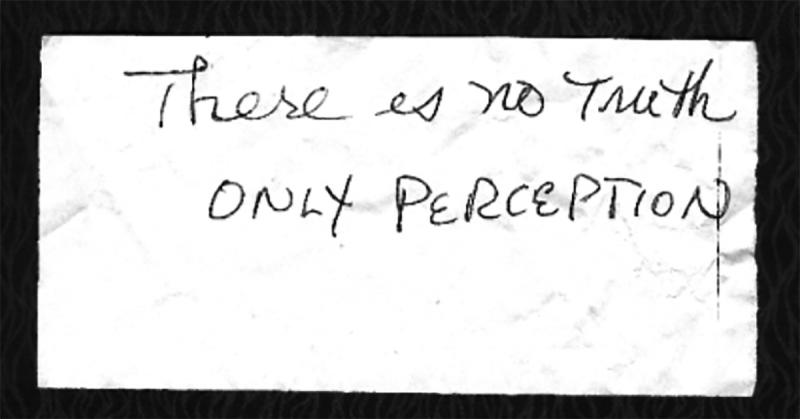 There is no Truth
ONLY PERCEPTION